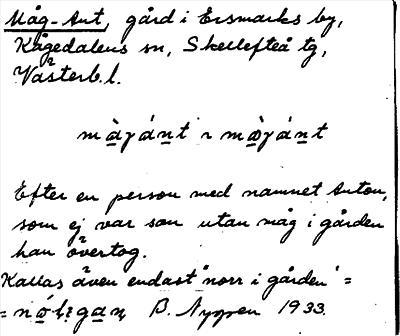 Måg-Ant, gård i Ersmarks by,
Kågedalens sn, Skellefteå tg,
Västerb. l.
Efter en person med namnet Anton,
som ej var son utan måg i gården
han övertog.
Kallas även endast "norr i gården" =
= B. Nygren 1933.